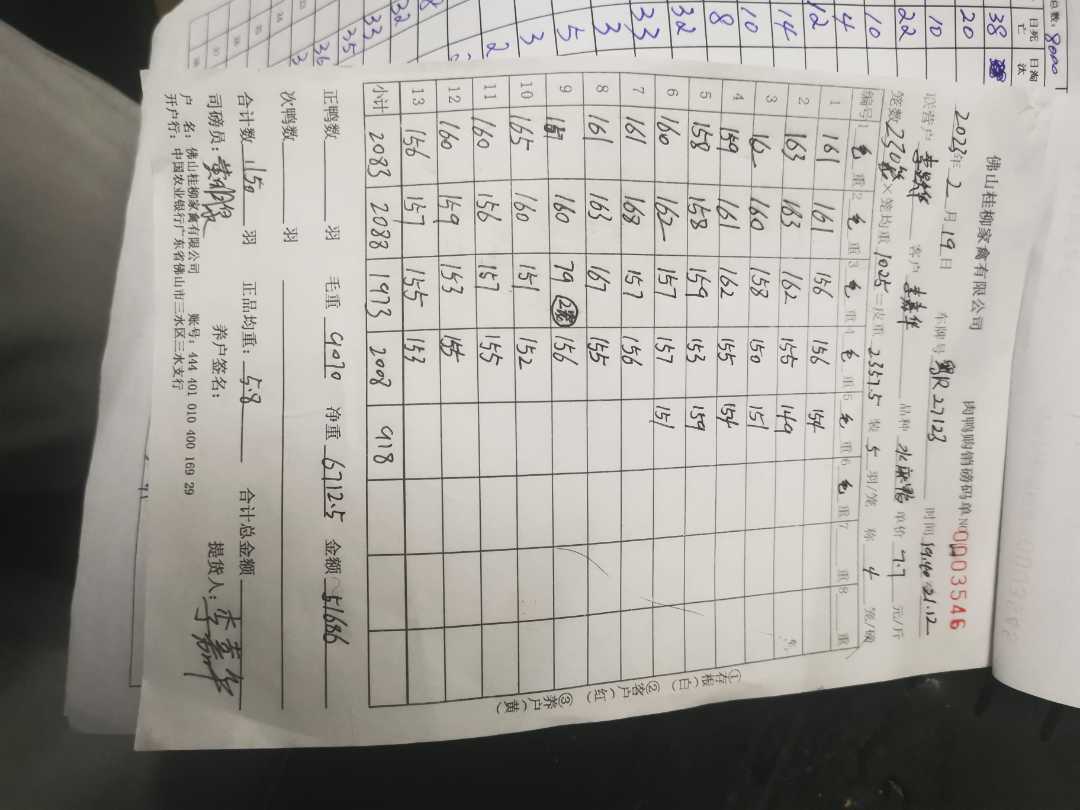 总数: 8000
日死亡 日淘汰
38
20
10
22
10
4
12
14
10
8
32
33
3
5
3
2
32
33
35
36
佛山桂柳家禽有限公司 肉鸭购销磅码单 №0003546
2023年 2 月 19 日 车牌号 粤R27123 时间 19:40 21:12
联营户 客户 李嘉华 品种 水麻鸭 单价 7.7 元/斤
笼数 230 × 笼均重 10.25 = 皮重 2357.5 装 5 羽/笼 称 4 笼/磅
编号 1 毛 重 2 毛 重 3 毛 重 4 毛 重 5 毛 重 6 毛 重 7 重 8 重
1 161 161 156 156 154
2 163 163 162 155 149
3 162 160 158 150 151
4 159 161 162 155 154
5 158 158 159 153 159
6 160 162 157 157 151
7 161 168 157 156
8 161 163 167 155
9 157 160 79 2笼 156
10 165 160 151 152
11 160 156 157 155
12 160 159 153 155
13 156 157 155 153
小计 2083 2088 1973 2008 918
正鸭数 羽 毛重 9070 净重 6712.5 金额 51686
次鸭数 羽
合计数 1150 羽 正品均重: 5.8 合计总金额
司磅员: 养户签名: 提货人: 李嘉华
户 名: 佛山桂柳家禽有限公司 账号: 444 401 010 400 169 29
开户行: 中国农业银行广东省佛山市三水区三水支行
①存根(白) ②客户(红) ③养户(黄)